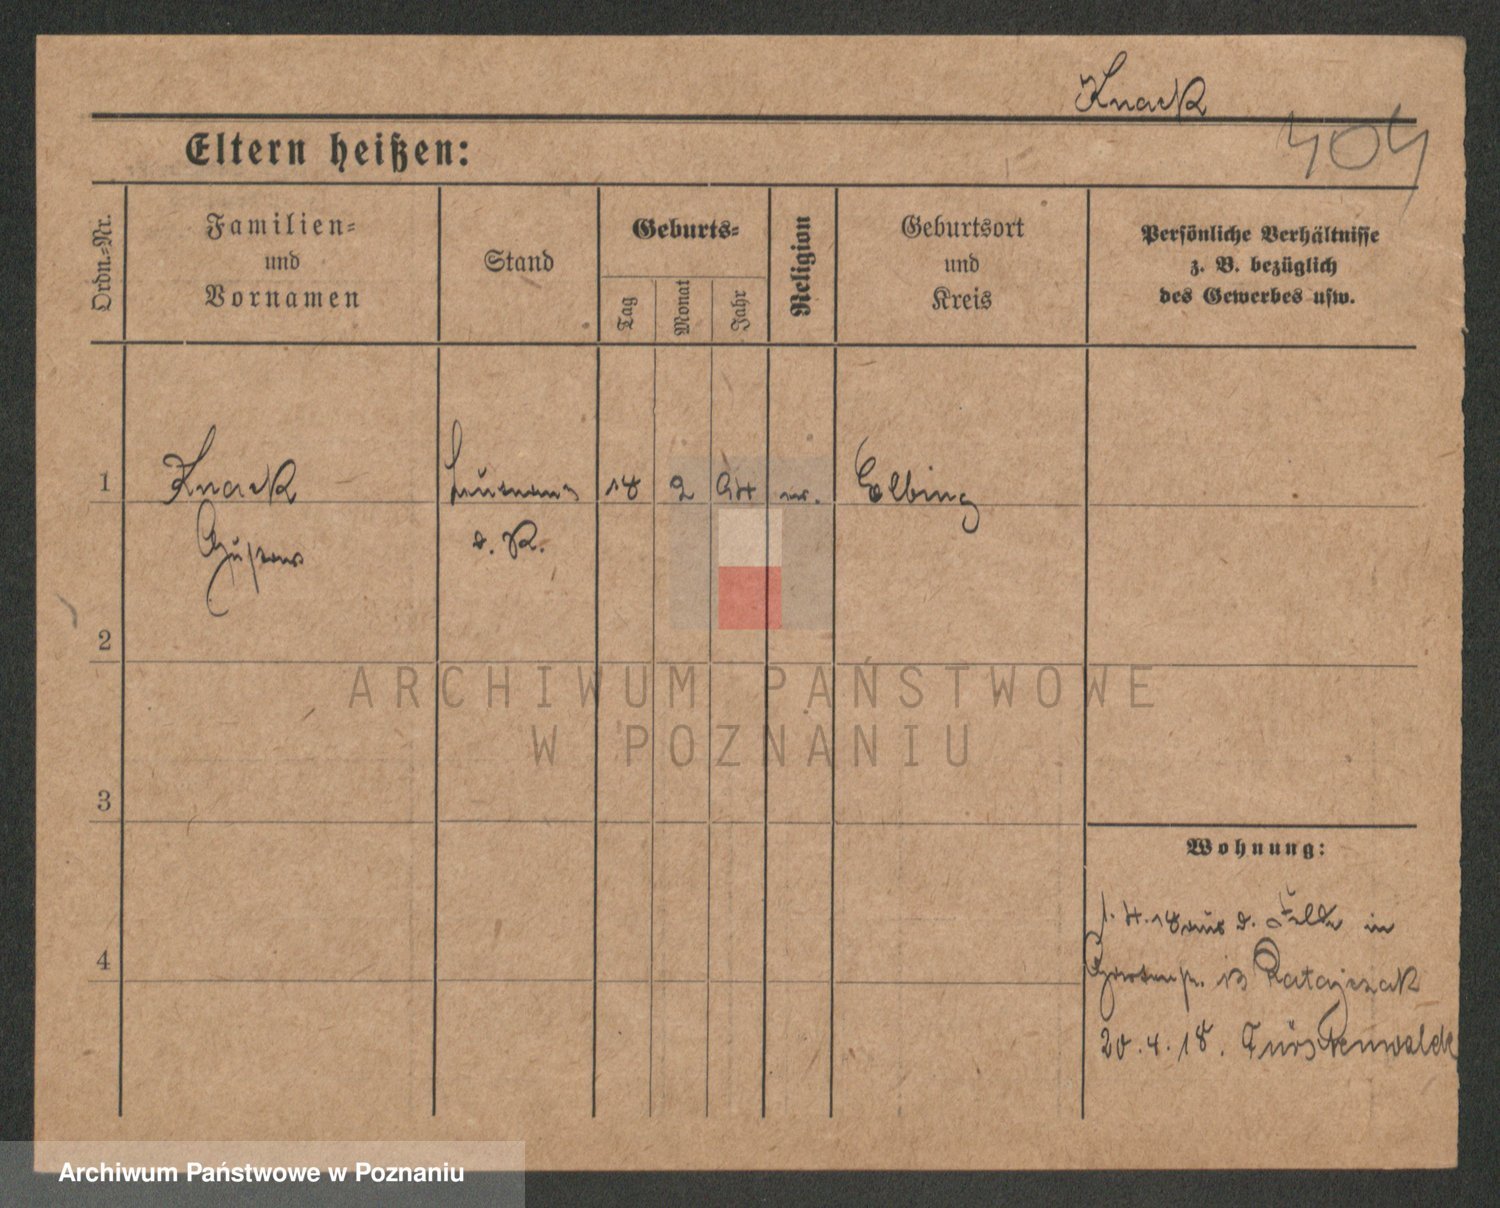 Knack
404
Eltern heißen:
Ordn.-Nr.
Familien-
und
Vornamen
Stand
Geburts-
Tag
Monat
Jahr
Religion
Geburtsort
und
Kreis
Persönliche Verhältnisse
z. B. bezüglich
des Gewerbes usw.
1
Knack
18
2
94
ev.
Elbing
Gustav
d. R.
2
ARCHIWUM PAŃSTWOWE
W POZNANIU
3
Wohnung:
1. 4. 18 aus d. Felde in
Gartenstr. 13 Ratajczak
4
20. 4. 18. Fürstenwalde
Archiwum Państwowe w Poznaniu